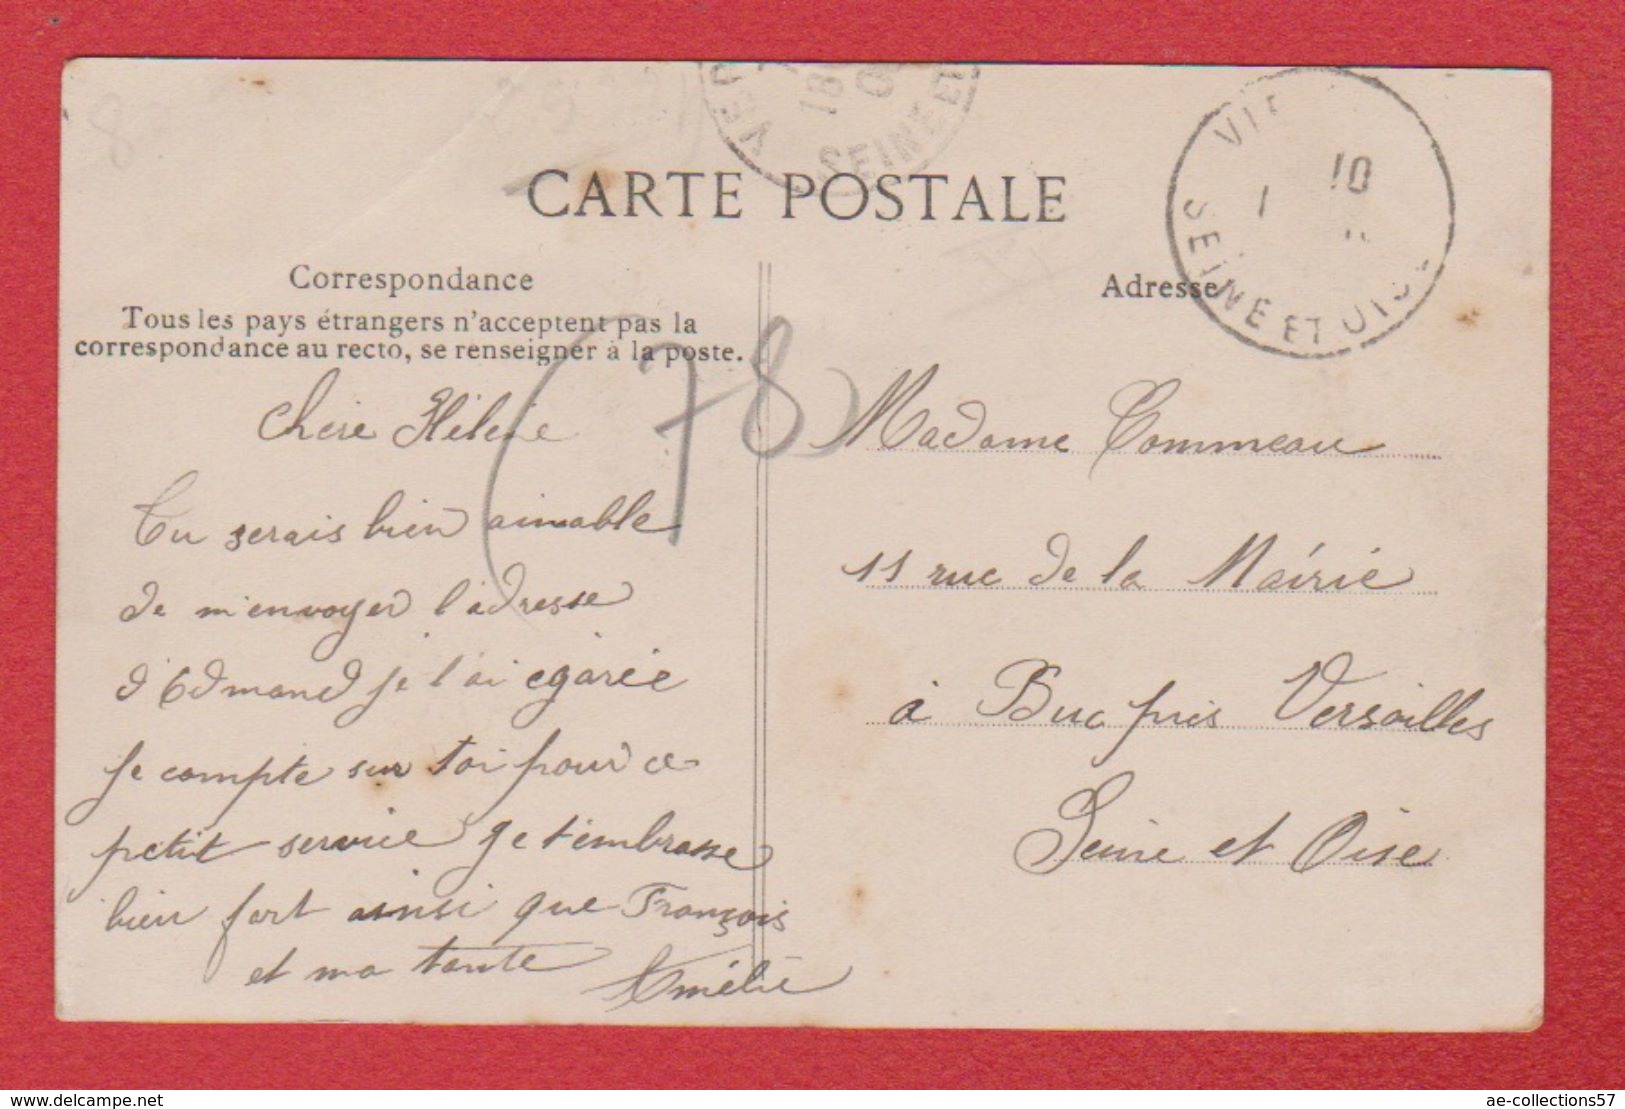 18
SEINE ET
CARTE POSTALE
10
1
SEINE ET OISE
Correspondance
Tous les pays étrangers n'acceptent pas la
correspondance au recto, se renseigner à la poste.
(78)
Chere Hélène
Tu serais bien aimable
de m'envoyer l'adresse
d'Edmand je l'ai egarée
Je compte sur toi pour ce
petit service je t'embrasse
bien fort ainsi que François
et ma tante Amélie
Adresse
Madame Commeau
11 rue de la Mairie
à Buc près Versailles
Seine et Oise
http://www.delcampe.net
ae-collections57